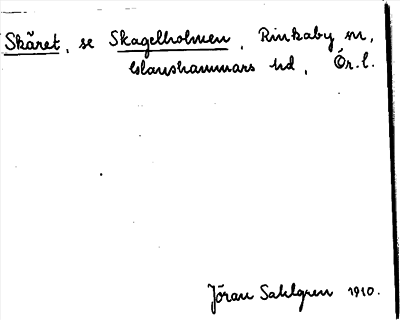 Skäret, se Skagelholmen, Rinkaby sn,
Glanshammars hd, Ör. l.
Jöran Sahlgren 1910.